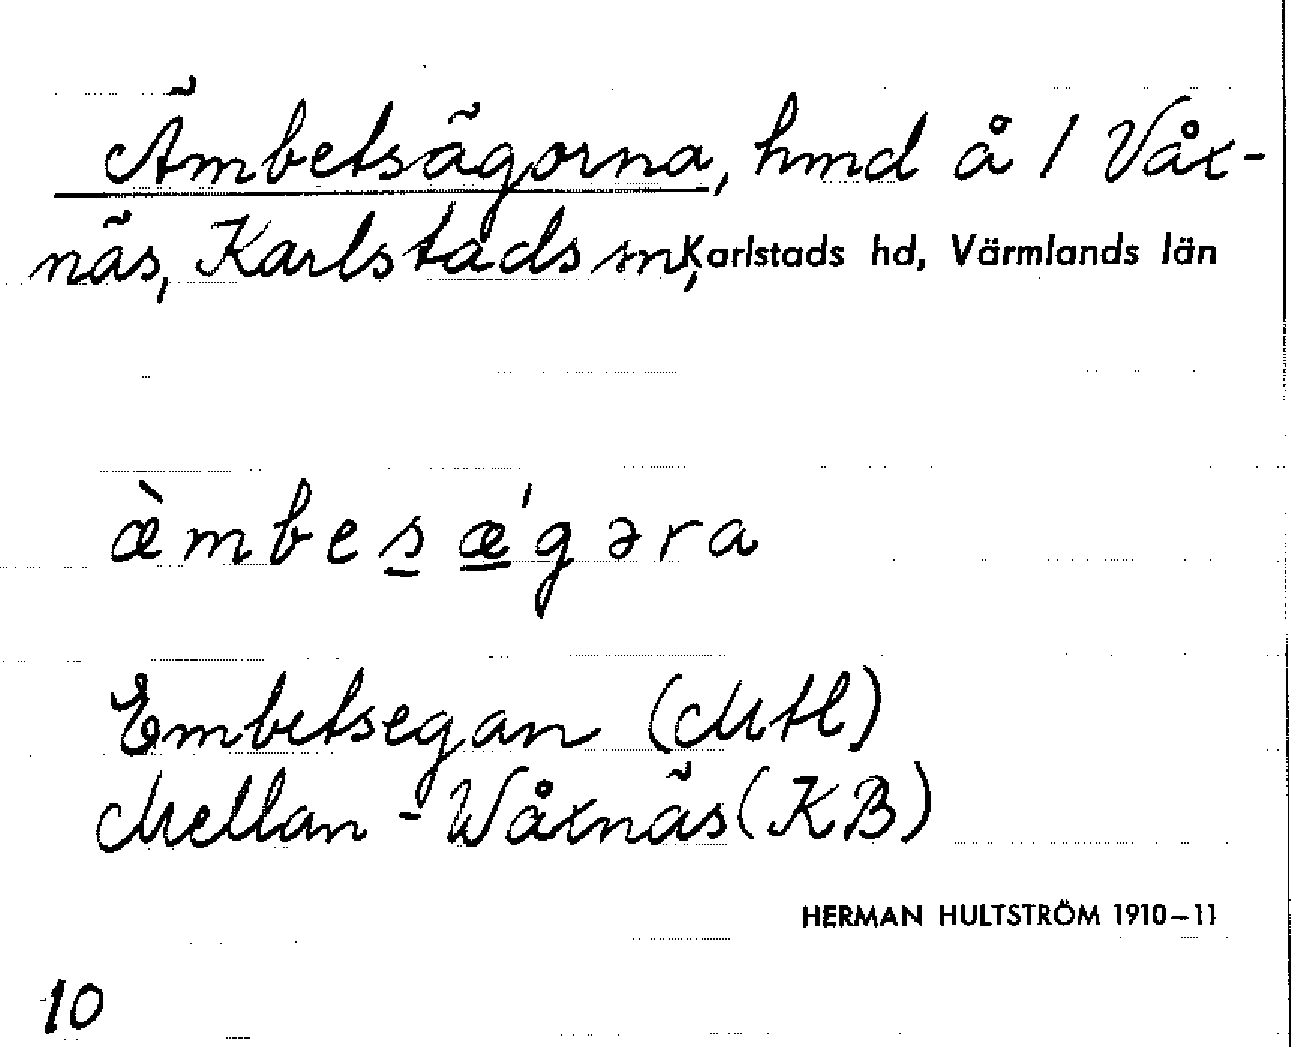 Ämbetsägorna, hmd å 1 Våx-
näs, Karlstads sn, Karlstads hd, Värmlands län
æ̀mbes̲ǽ̲gəra
Embetsegan (Mtl)
Mellan-Wåxnäs (KB)
HERMAN HULTSTRÖM 1910–11
10